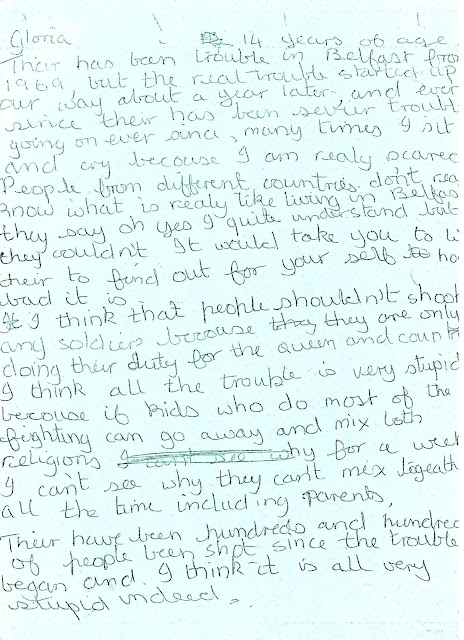 Gloria 14 years of age
Their has been trouble in Belfast from
1969 but the real trouble started up
our way about a year later and ever
since their has been sevier trouble
going on ever since, many times I sit
and cry because I am realy scared
People from different countries dont real
know what is realy like living in Belfas
they say oh yes I quite understand but
they couldn't It would take you to li
their to find out for your self to how
bad it is
It I think that people shouldn't shoot
any soldiers because they they are only
doing their duty for the Queen and countr
I think all the trouble is very stupid
because if kids who do most of the
fighting can go away and mix both
religions I can't see why for a week
I can't see why they can't mix togeath
all the time including parents,
Their have been hundreds and hundred
of people been shot since the trouble
began and. I think it is all very
stupid indeed.